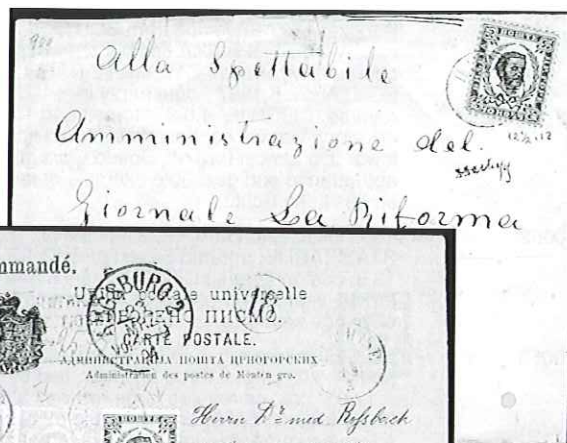 Alla Spettabile
Amministrazione del.
Giornale La Riforma
mmandé.
Union postale universelle
ОТВОРЕНО ПИСМО.
CARTE POSTALE.
АДМИНИСТРАЦИЈА ПОШТА ЦРНОГОРСКИХ
Administration des postes de Monténégro.
Herrn Dr. med